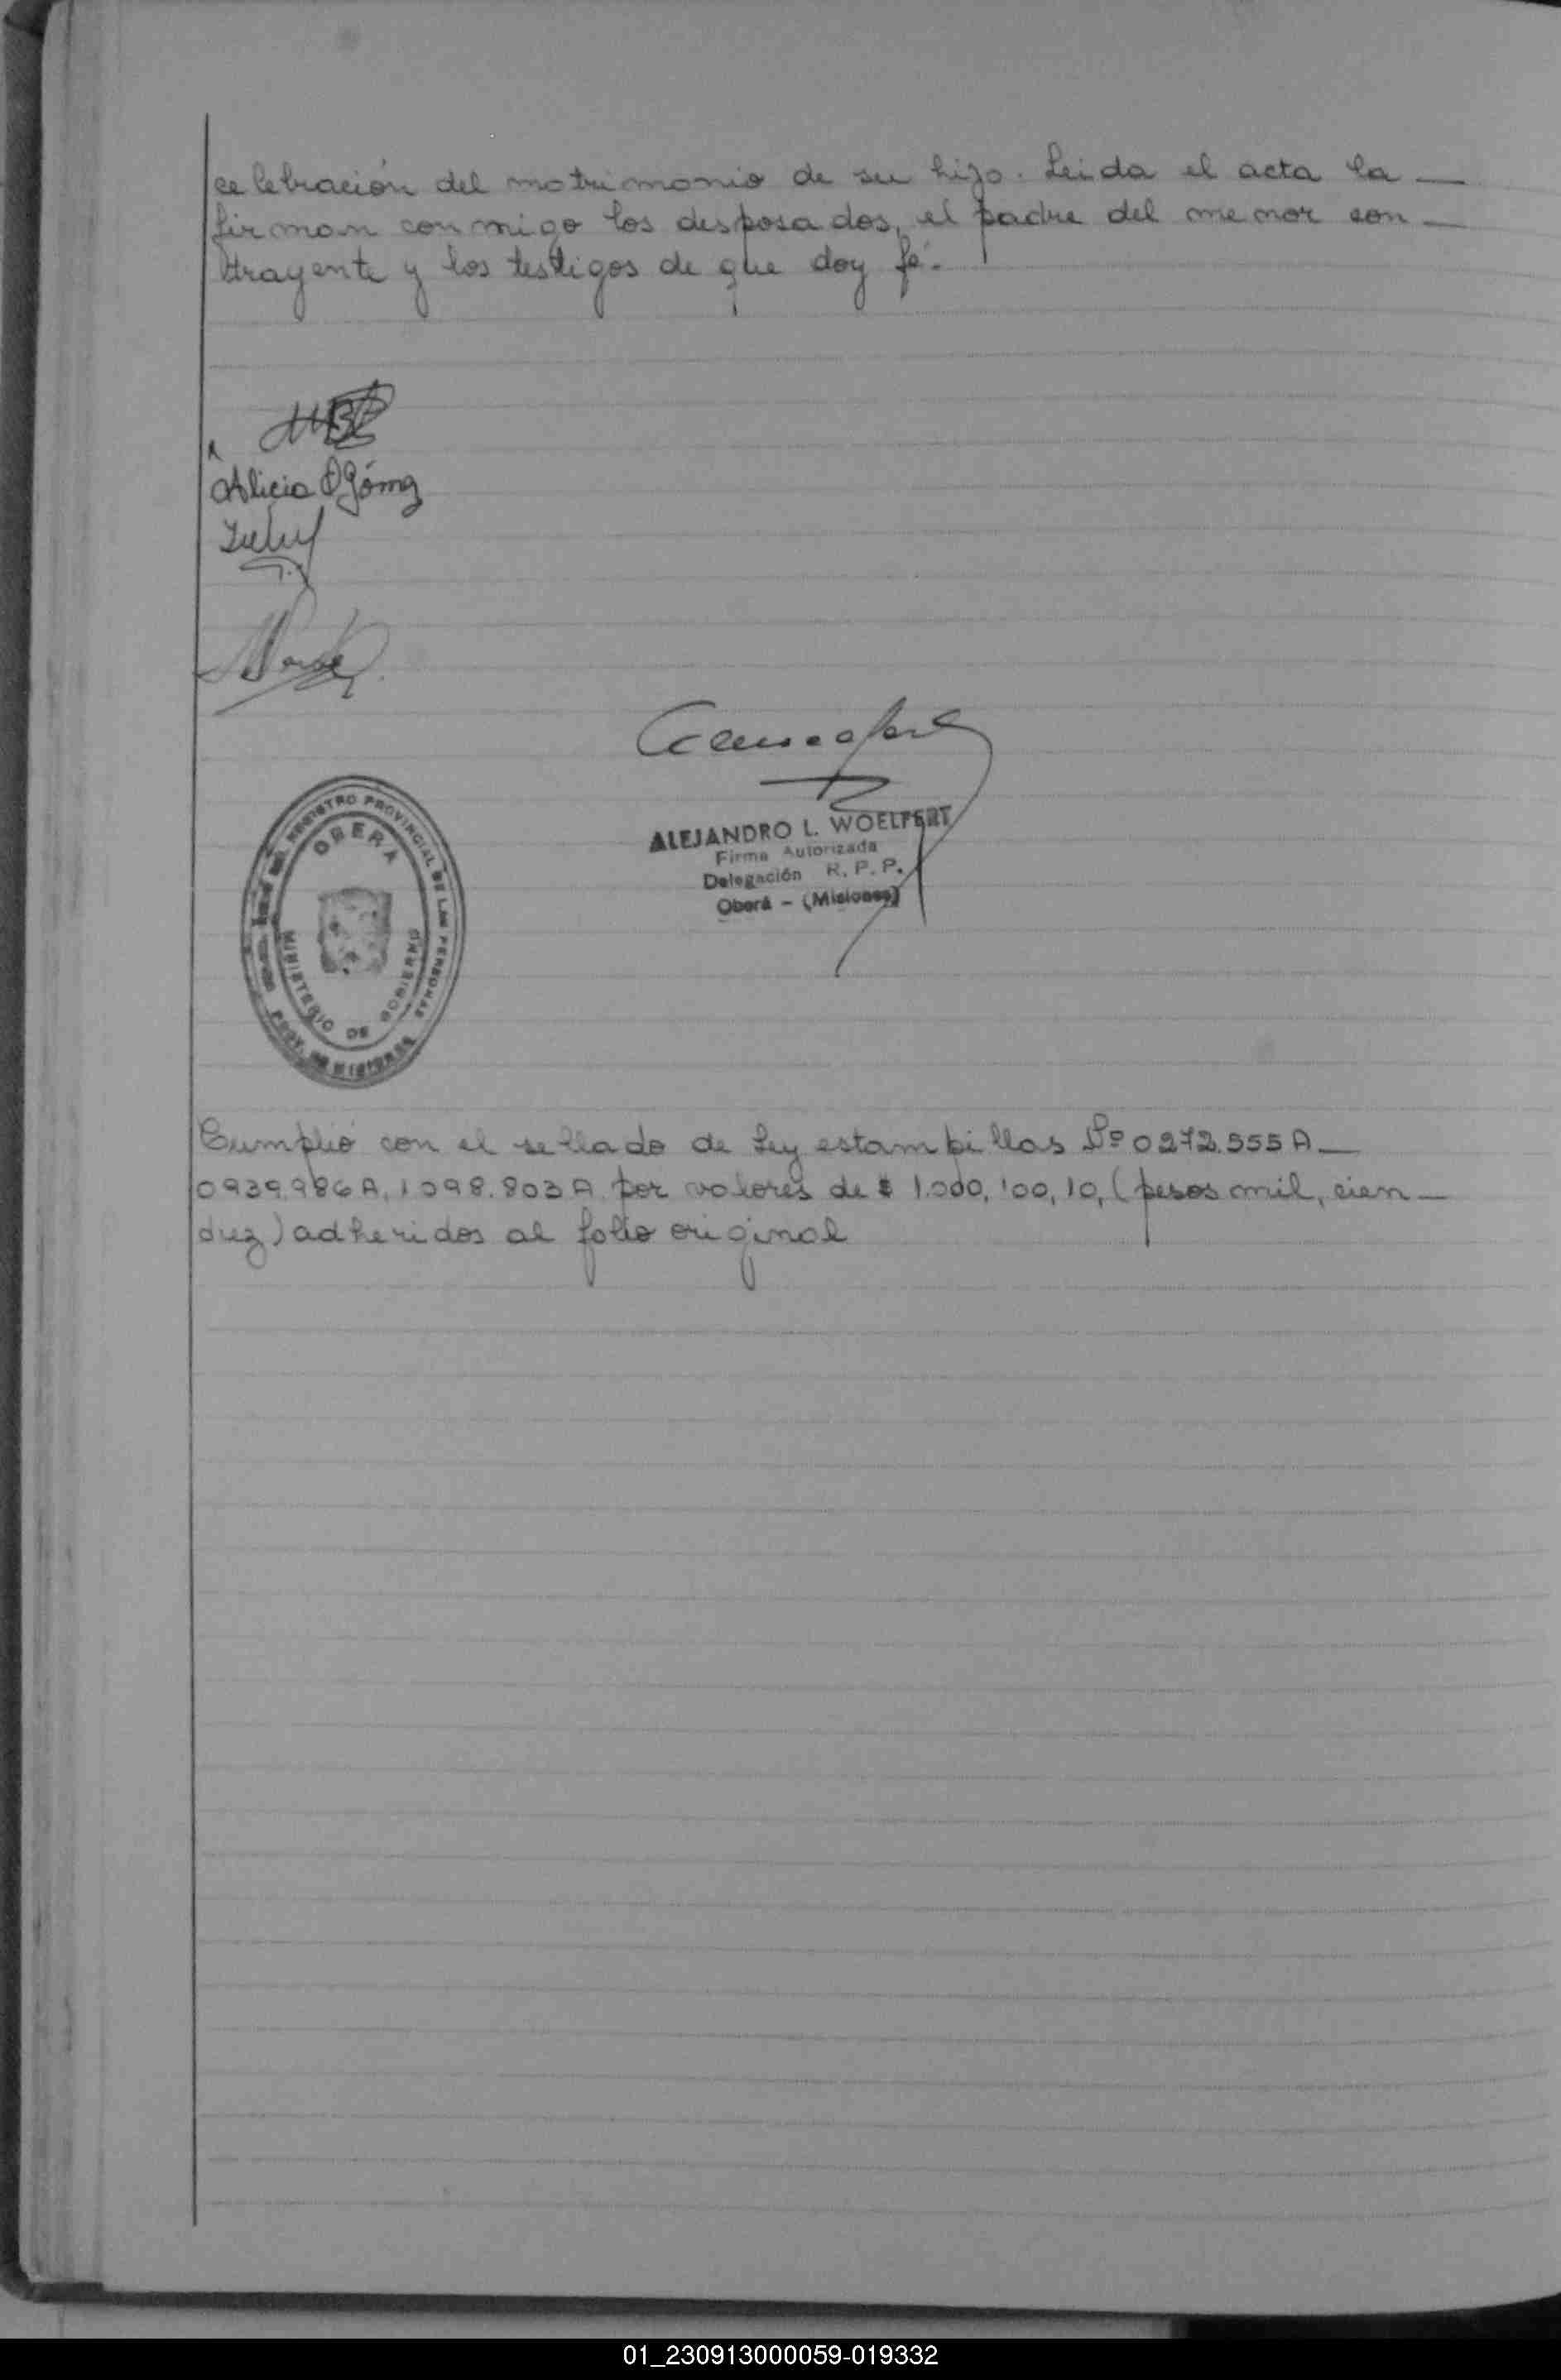 celebración del matrimonio de su hijo. Leida el acta la —
firman conmigo los desposados, el padre del menor con —
trayente y los testigos de que doy fé.
Alicia Gómez
ALEJANDRO L. WOELFERT
Firma Autorizada
Delegación R. P. P.
Oberá - (Misiones)
REGISTRO PROVINCIAL DE LAS PERSONAS
OBERA
MINISTERIO DE GOBIERNO
PROV. DE MISIONES
Cumplió con el sellado de Ley estampillas Nº 0272.555A —
0939.986A, 1098.803A por valores de $ 1.000, 100, 10, (pesos mil, cien —
diez) adheridos al folio original
01_230913000059-019332